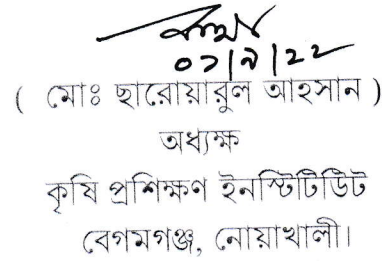 ০১/৯/২২
( মোঃ ছারোয়ারুল আহসান )
অধ্যক্ষ
কৃষি প্রশিক্ষণ ইনস্টিটিউট
বেগমগঞ্জ, নোয়াখালী।